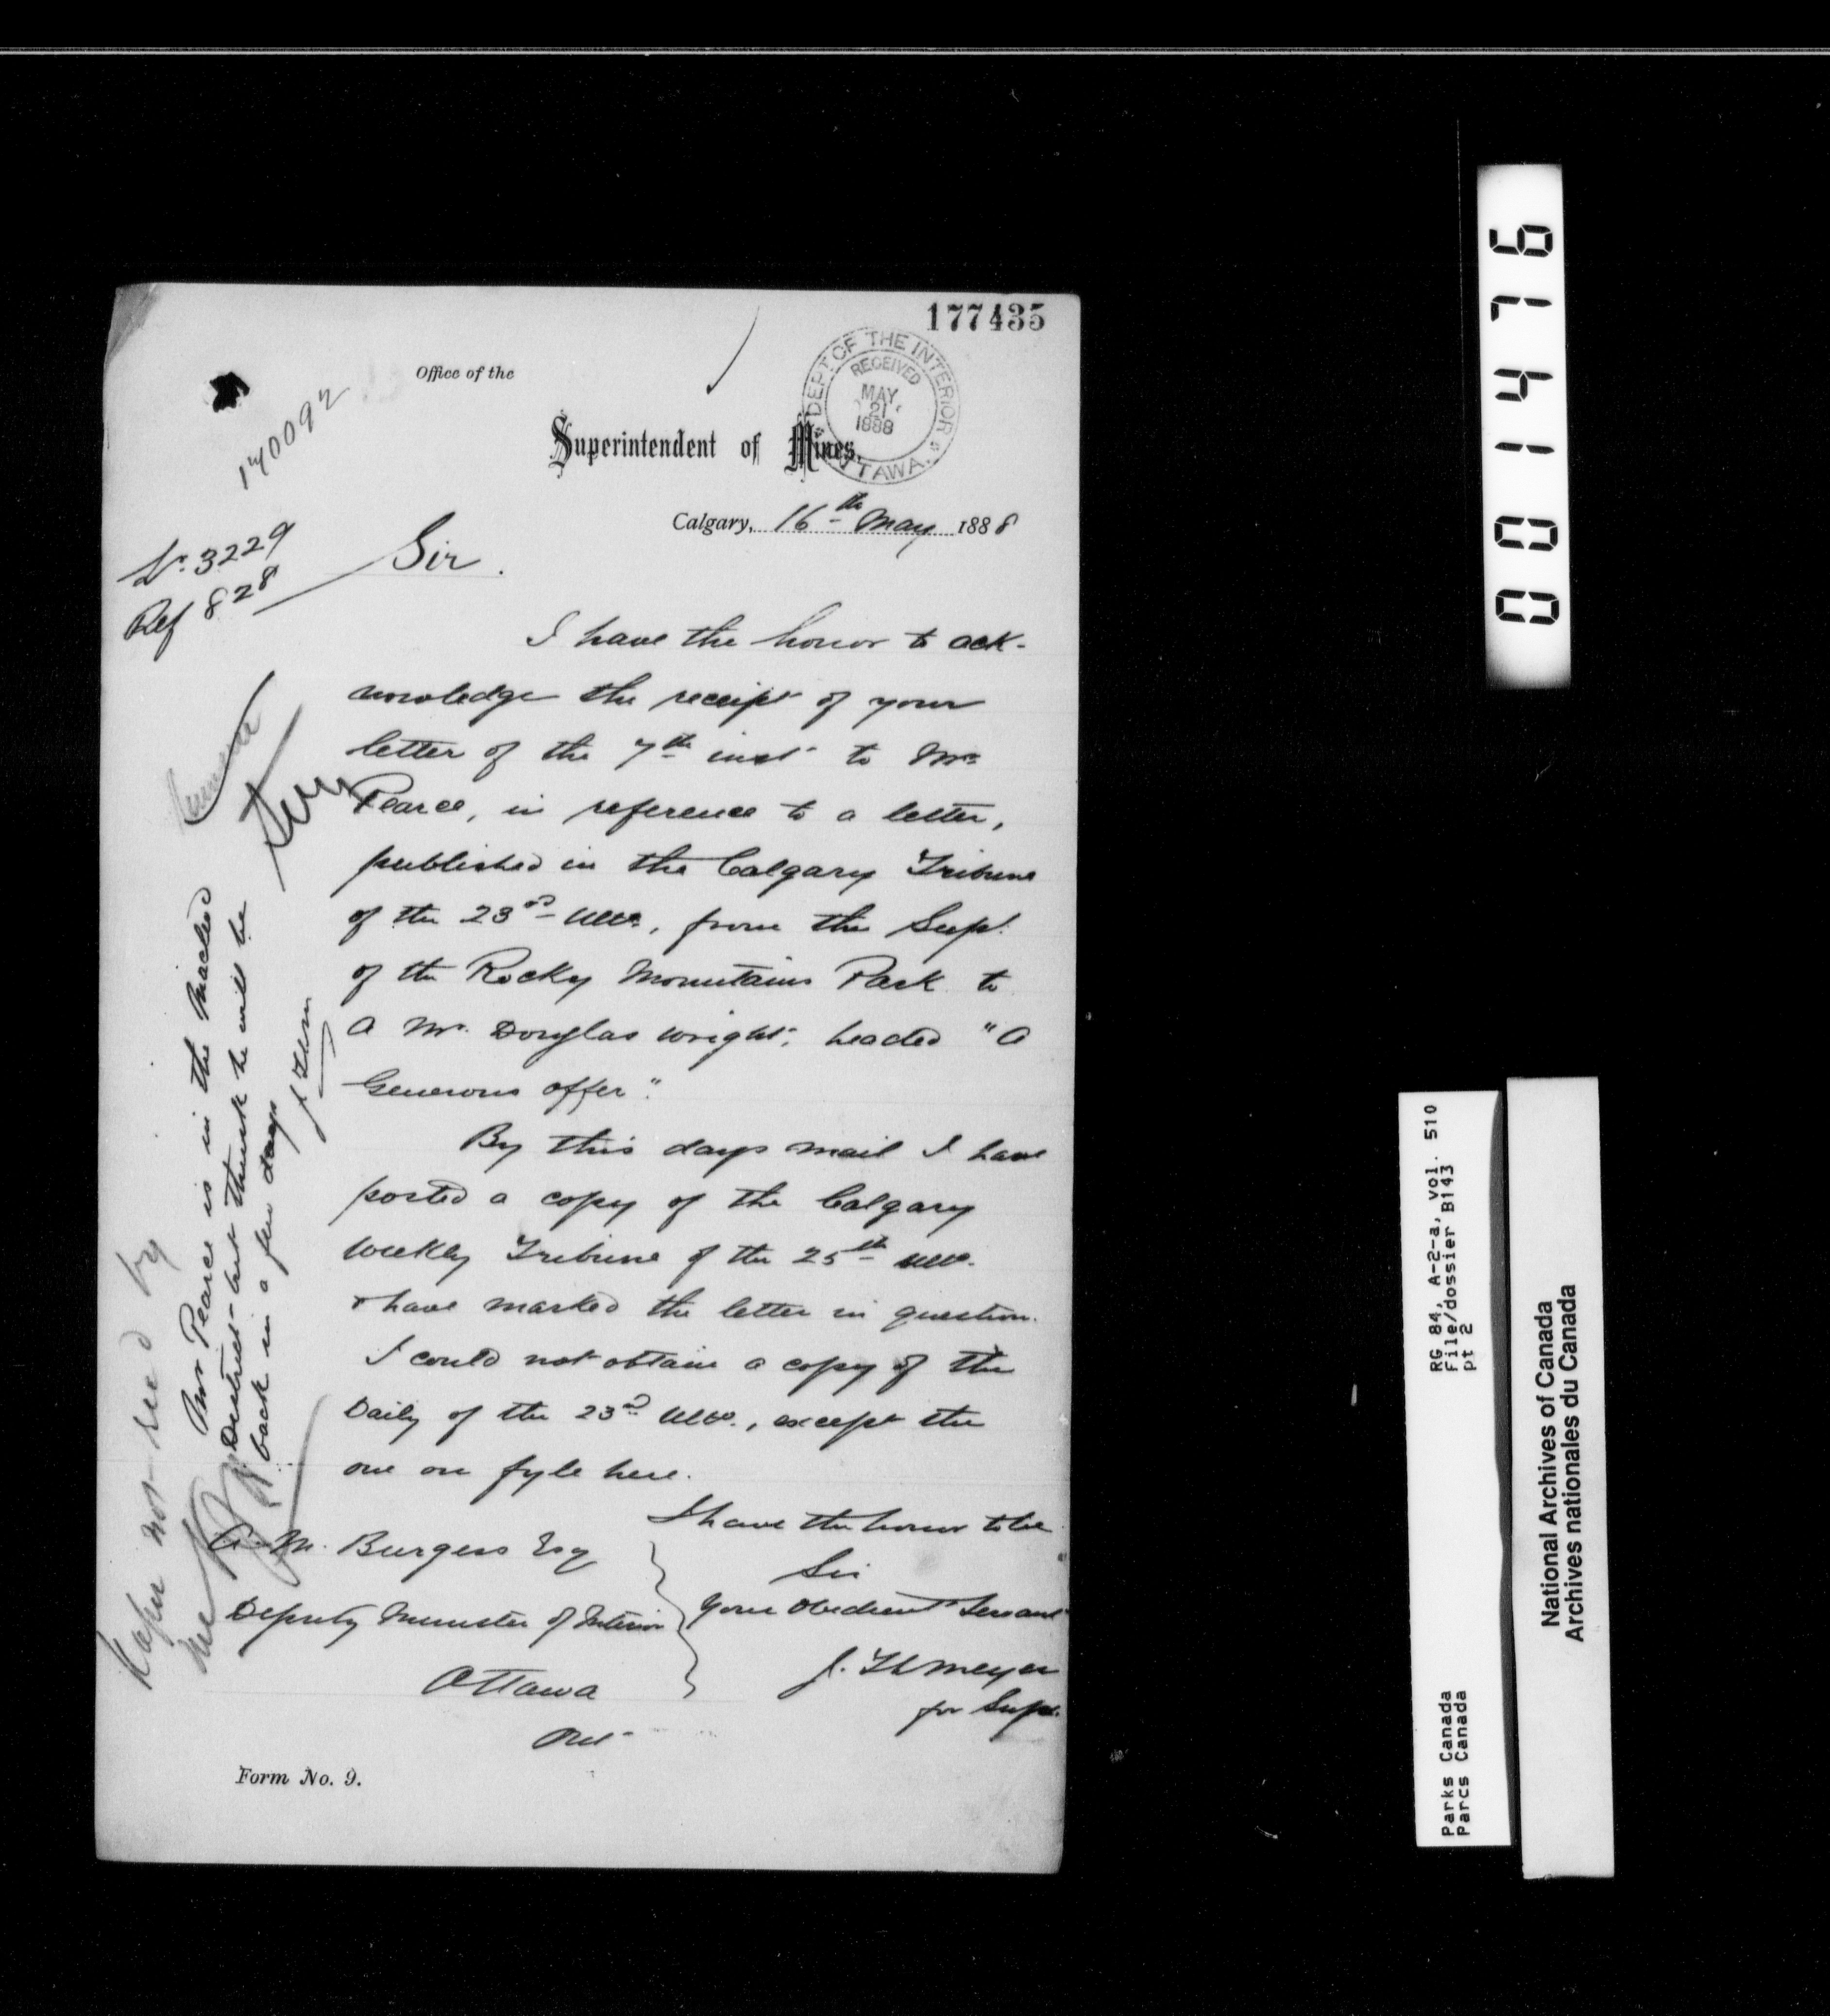 177435
Office of the
Superintendent of Mines.
DEPT. OF THE INTERIOR
RECEIVED
MAY
21
1888
OTTAWA.
170092
Calgary, 16th May 1888
No. 3229
Ref 828
Sir.
I have the honor to ack-
nowledge the receipt of your
letter of the 7th inst to Mr.
Pearce, in reference to a letter,
published in the Calgary Tribune
of the 23rd ulto., from the Supt.
of the Rocky Mountains Park to
a Mr. Douglas Wright, headed "A
Generous offer".
By this days mail I have
posted a copy of the Calgary
Weekly Tribune of the 25th ulto.
& have marked the letter in question.
I could not obtain a copy of the
Daily of the 23rd ulto., except the
one on fyle here.
I have the honor to be
Sir
Your obedient Servant
for Supt.
A. M. Burgess Esq
Deputy Minister of Interior
Ottawa
Ont
Form No. 9.
Mr Pearce is in the Macleod
District but think he will be
back in a few days
Paper not recd by
me
001476
RG 84, A-2-a, vol. 510
File/dossier B143
pt 2
Parks Canada
Parcs Canada
National Archives of Canada
Archives nationales du Canada